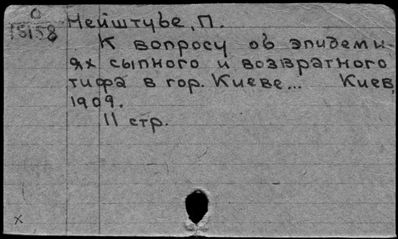 О
15158
Нейштубе, П.
К вопросу об эпидеми-
ях сыпного и возвратного
тифа в гор. Киеве... Киев,
1909.
11 стр.
х